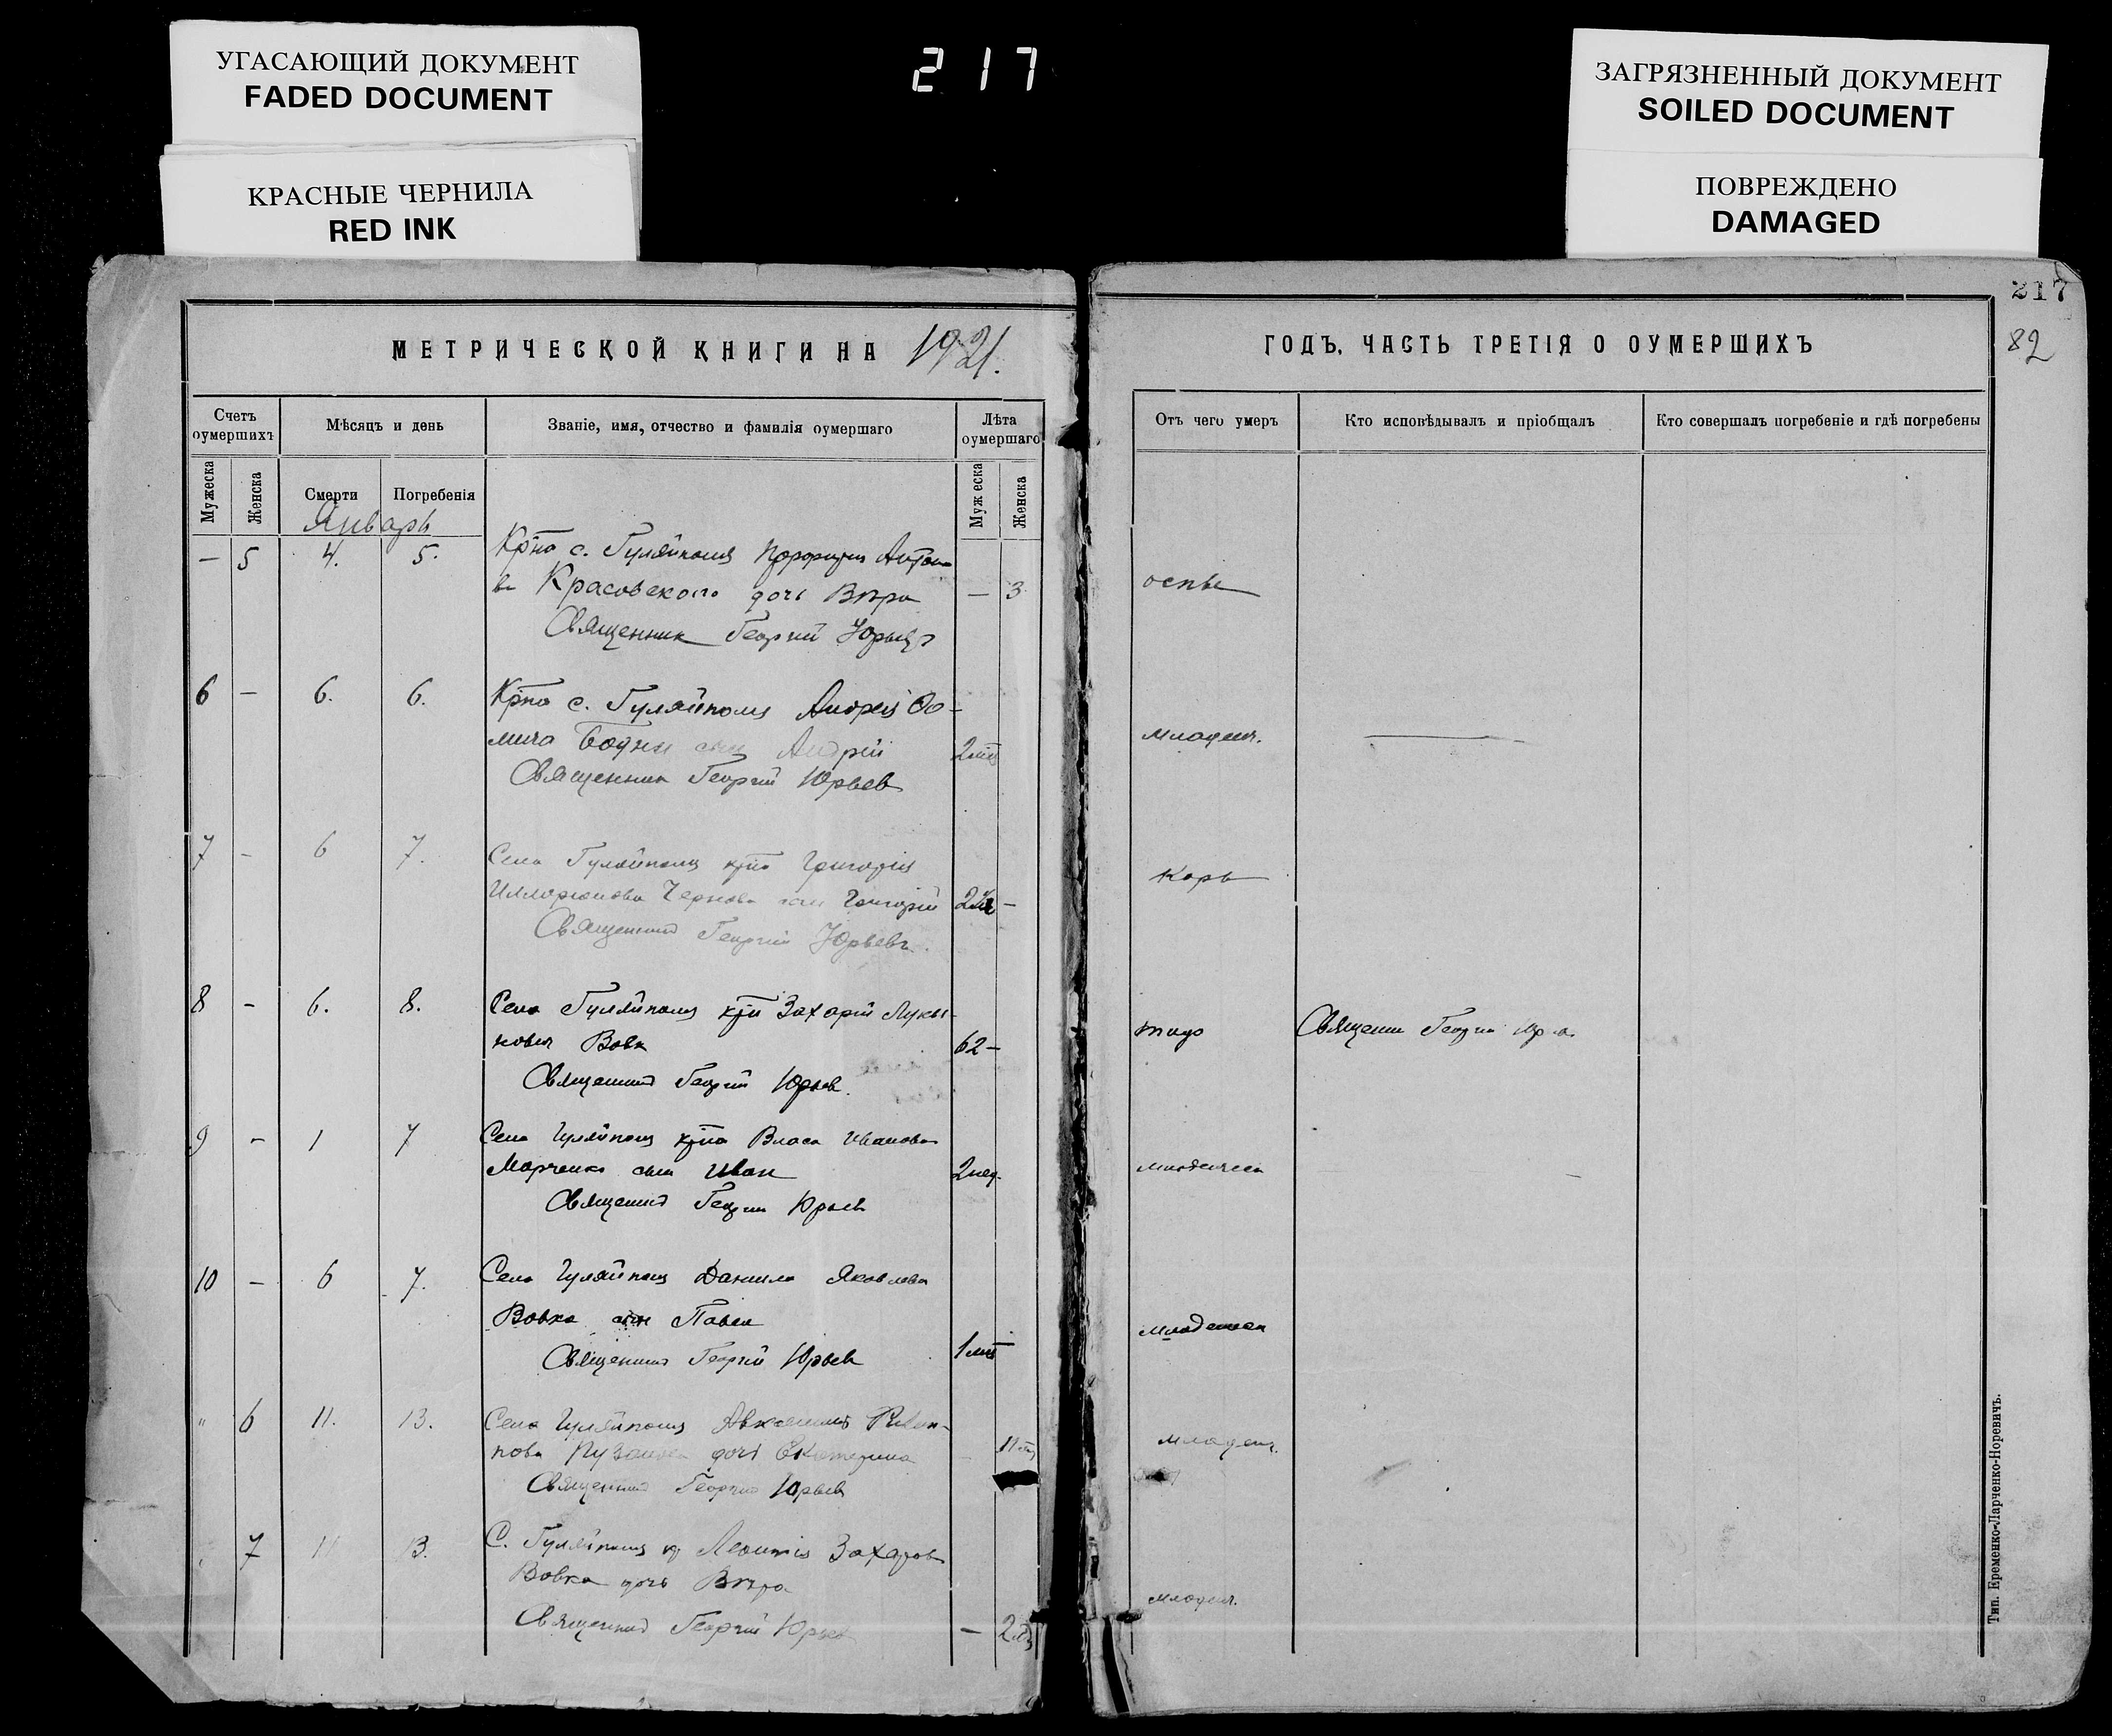 УГАСАЮЩИЙ ДОКУМЕНТ
FADED DOCUMENT
КРАСНЫЕ ЧЕРНИЛА
RED INK
217
ЗАГРЯЗНЕННЫЙ ДОКУМЕНТ
SOILED DOCUMENT
ПОВРЕЖДЕНО
DAMAGED
217
82
МЕТРИЧЕСКОЙ КНИГИ НА 1921.
Счетъ оумершихъ
Мѣсяцъ и день
Званіе, имя, отчество и фамилія оумершаго
Лѣта оумершаго
Мужеска
Женска
Смерти
Погребенія
Мужеска
Женска
Январь
— 5 4. 5. Крна с. Гуляйполя Антоно
ва Красовского дочь Вѣра — 3
Священник Георгий Юрьевъ
6 — 6. 6. Крна с. Гуляйполя Андрея Фо-
мича сын Андрій 2 мц
Священник Георгий Юрьев
7 - 6 7. Села Гуляйполя крна Григорія
Илларионова Чернова сын Григорій —
Священник Георгий Юрьевъ.
8 - 6. 8. Села Гуляйполя Захарій Лукья-
нович Вовк 62 —
Священник Георгий Юрьев.
9 - 1 7 Села Гуляйполя крна Власа Иванова
Марченко сын Иван 2 нед.
Священник Георгий Юрьев
10 - 6 7. Села Гуляйполя Данила Яковлева
Вовка сын Павел
Священник Георгий Юрьев 1 мц
" 6 11. 13. Села Гуляйполя
дочь Екатерина
Священник Георгий Юрьев
7 11 13. С. Гуляйполя кр Леонтія Захаров
Вовка дочь Вѣра
Священник Георгий Юрьев — 2
ГОДЪ, ЧАСТЬ ТРЕТІЯ О ОУМЕРШИХЪ
Отъ чего умеръ
Кто исповѣдывалъ и пріобщалъ
Кто совершалъ погребеніе и гдѣ погребены
оспы
младенч.
Корь
тиф Священн Георгий
младенческ
младенческ
младенч.
младенч.
Тип. Еременко-Ларченко-Норевичъ.